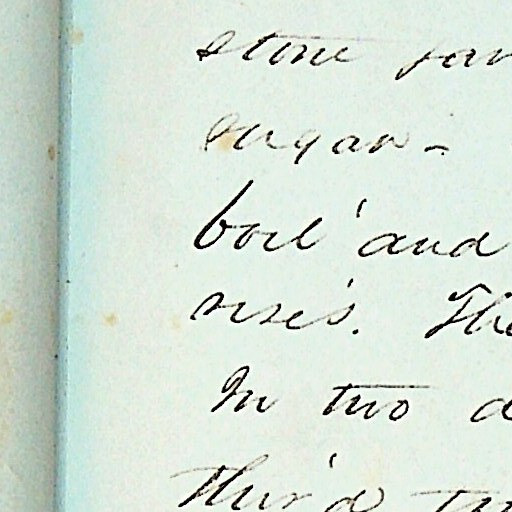 stone jar
sugar -
boil and
rises. The
In two d
third